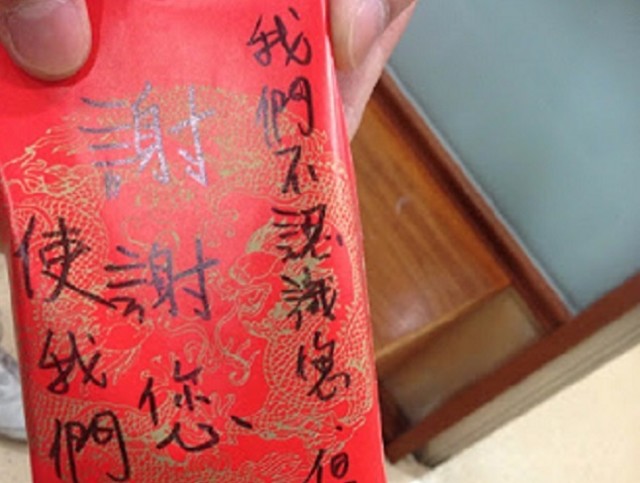 我們不認識您.但
謝謝您、
使我們